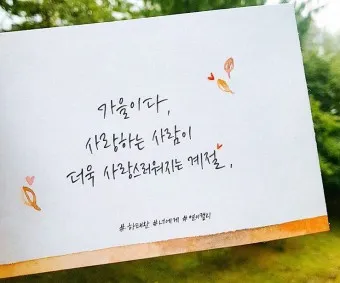 가을이다,
사랑하는 사람이
더욱 사랑스러워지는 계절,
#하태완 #너에게 #엔비캘리